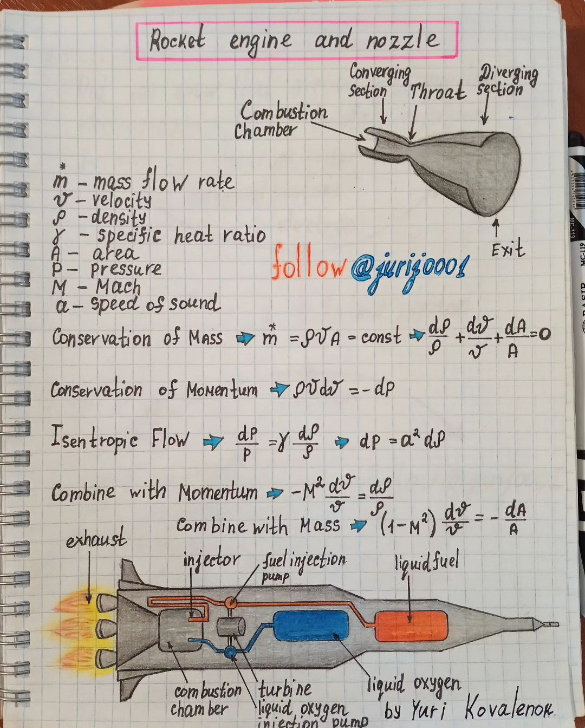 Rocket engine and nozzle
Converging section
Throat
Diverging section
Combustion Chamber
Exit
ṁ - mass flow rate
v - velocity
ρ - density
γ - specific heat ratio
A - area
P - pressure
M - Mach
a - speed of sound
follow @jurij0001
Conservation of Mass → ṁ = ρvA - const → dρ/ρ + dv/v + dA/A = 0
Conservation of Momentum → ρvdv = -dp
Isentropic Flow → dP/P = γ dρ/ρ → dP = a² dρ
Combine with Momentum → -M² dv/v = dρ/ρ
Combine with Mass → (1-M²) dv/v = - dA/A
exhaust
injector
fuel injection pump
liquid fuel
combustion chamber
turbine
liquid oxygen injection pump
liquid oxygen
by Yuri Kovalenok